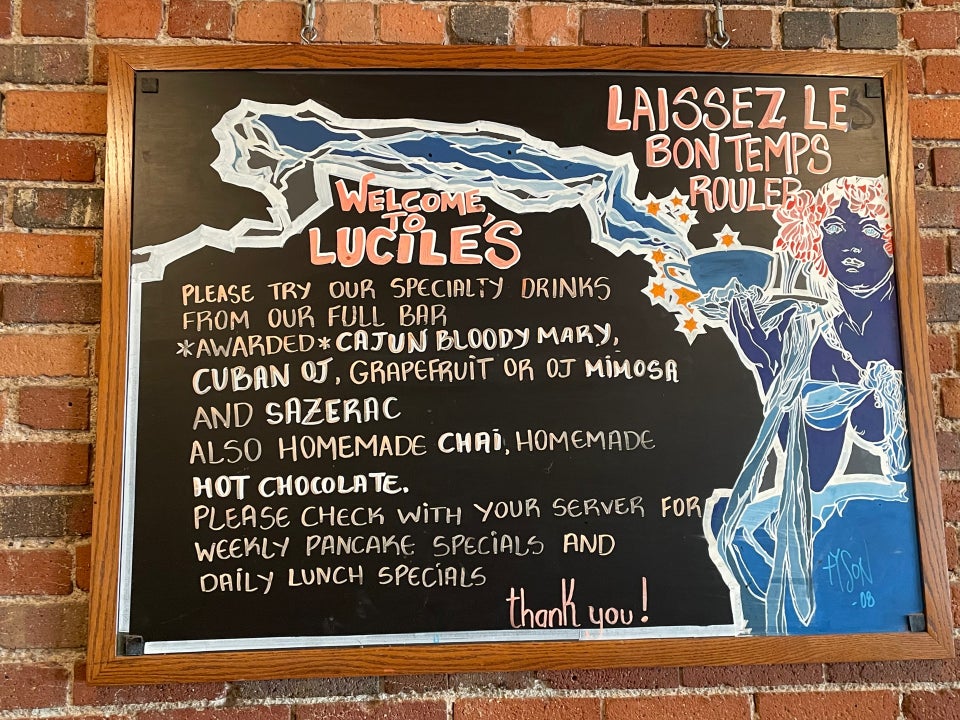 LAISSEZ LE
BON TEMPS
ROULER
WELCOME
TO
LUCILE'S
PLEASE TRY OUR SPECIALTY DRINKS
FROM OUR FULL BAR
*AWARDED* CAJUN BLOODY MARY,
CUBAN OJ, GRAPEFRUIT OR OJ MIMOSA
AND SAZERAC
ALSO HOMEMADE CHAI, HOMEMADE
HOT CHOCOLATE.
PLEASE CHECK WITH YOUR SERVER FOR
WEEKLY PANCAKE SPECIALS AND
DAILY LUNCH SPECIALS
thank you!
TYSON
-08